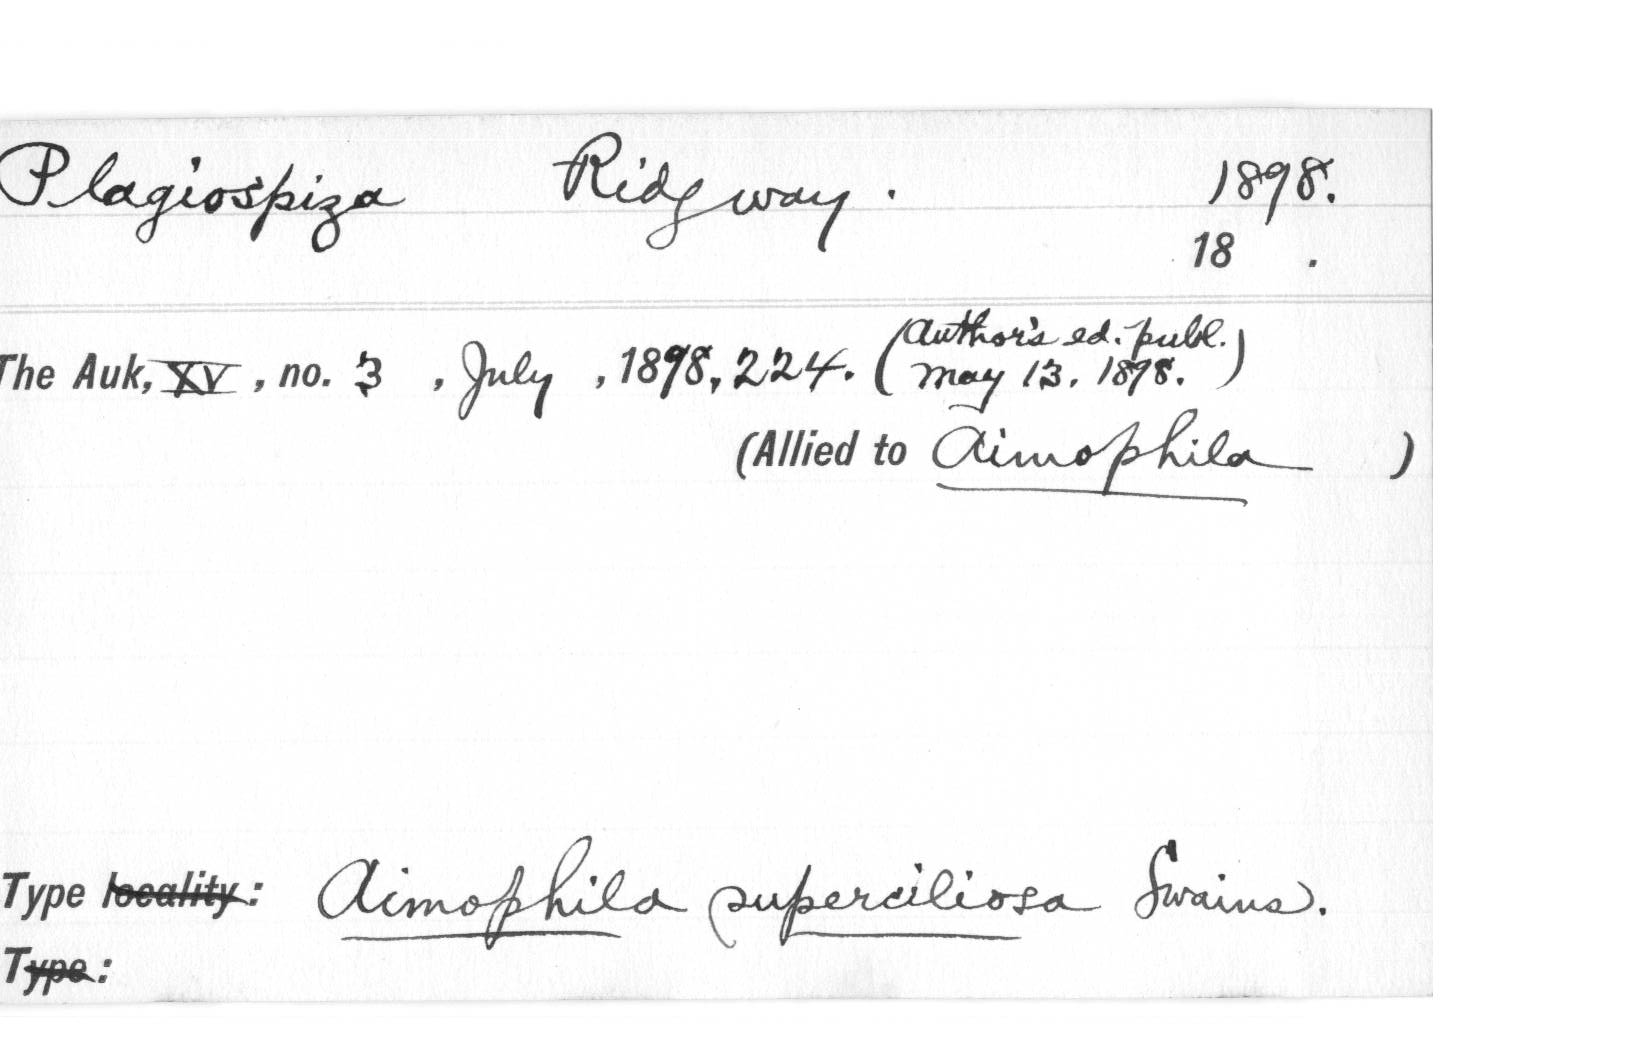 Plagiospiza Ridgway. 1898.
18 .
The Auk, XV, no. 3, July, 1898, 224. (Author's ed. publ.
May 13, 1898.)
(Allied to Aimophila )
Type locality: Aimophila superciliosa Swains.
Type: